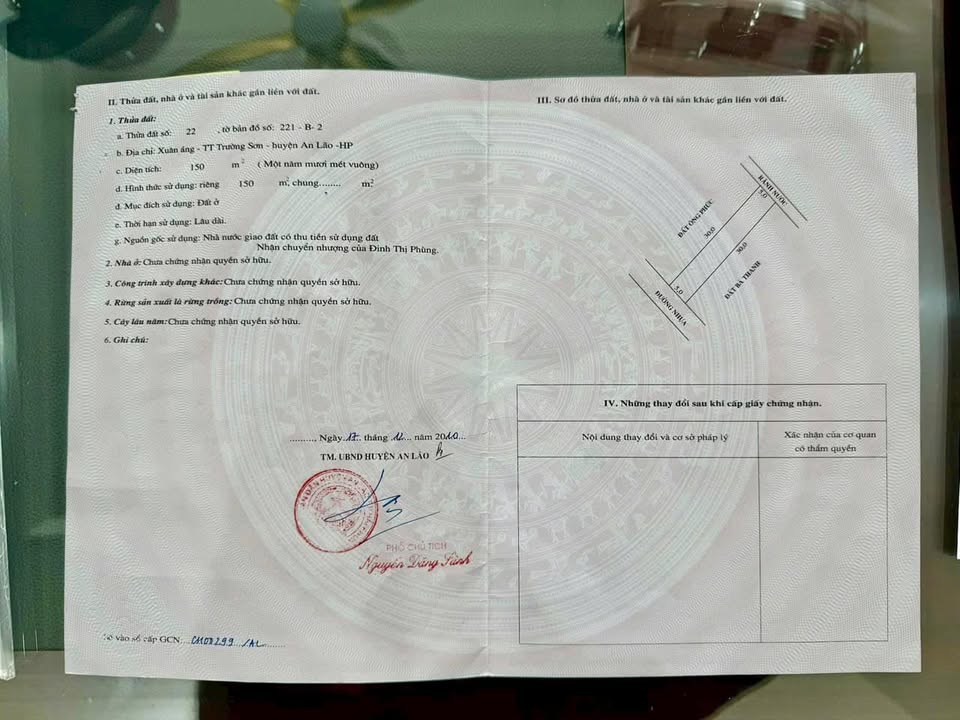 II. Thửa đất, nhà ở và tài sản khác gắn liền với đất.
1. Thửa đất:
a. Thửa đất số: 22 , tờ bản đồ số: 221 - B- 2
b. Địa chỉ: Xuân áng - TT Trường Sơn - huyện An Lão -HP
c. Diện tích: 150 m² ( Một năm mươi mét vuông)
d. Hình thức sử dụng: riêng 150 m², chung........ m²
đ. Mục đích sử dụng: Đất ở
e. Thời hạn sử dụng: Lâu dài.
g. Nguồn gốc sử dụng: Nhà nước giao đất có thu tiền sử dụng đất
Nhận chuyển nhượng của Đinh Thị Phùng.
2. Nhà ở: Chưa chứng nhận quyền sở hữu.
3. Công trình xây dựng khác: Chưa chứng nhận quyền sở hữu.
4. Rừng sản xuất là rừng trồng: Chưa chứng nhận quyền sở hữu.
5. Cây lâu năm: Chưa chứng nhận quyền sở hữu.
6. Ghi chú:
.......... Ngày 17 tháng 12 năm 2010
TM. UBND HUYỆN AN LÃO
PHÓ CHỦ TỊCH
Nguyễn Đăng
vào sổ cấp GCN: CH00299 /AL
III. Sơ đồ thửa đất, nhà ở và tài sản khác gắn liền với đất.
RÃNH NƯỚC
5.0
ĐẤT ÔNG PHÚC
30.0
30.0
ĐẤT BÀ THANH
5.0
ĐƯỜNG NHỰA
IV. Những thay đổi sau khi cấp giấy chứng nhận.
Nội dung thay đổi và cơ sở pháp lý
Xác nhận của cơ quan
có thẩm quyền